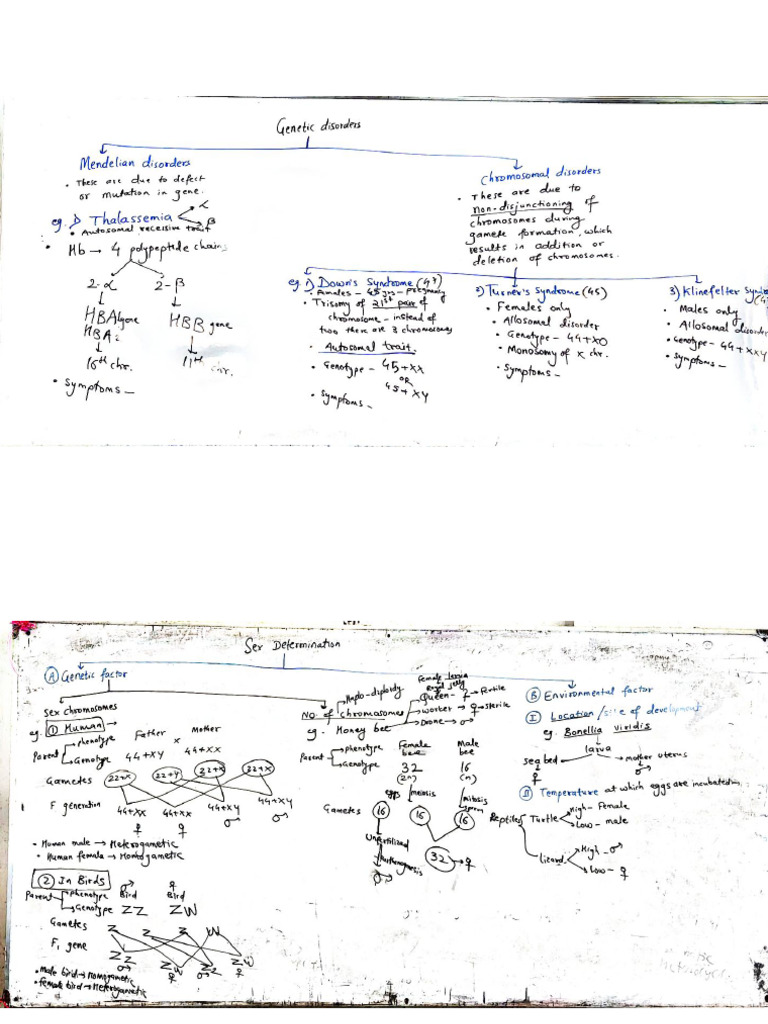 Genetic disorders
Mendelian disorders
• These are due to defect
or mutation in gene.
eg. 1) Thalassemia
α
β
• Autosomal recessive trait
• Hb → 4 polypeptide chains
2-α
2-β
HBA1gene
HBA2
HBB gene
16th chr.
11th chr.
• Symptoms –
Chromosomal disorders
• These are due to
non-disjunctioning of
chromosomes during
gamete formation, which
results in addition or
deletion of chromosomes.
eg. 1) Down's Syndrome (47)
• Females – 45 yrs – pregnancy
• Trisomy of 21st pair of
chromosome – instead of
two there are 3 chromosomes
• Autosomal trait.
• Genotype – 45+XX
OR
45+XY
• Symptoms –
2) Turner's Syndrome (45)
• Females only
• Allosomal disorder
• Genotype – 44+XO
• Monosomy of X chr.
• Symptoms –
3) Klinefelter Syndro
(4
• Males only
• Allosomal disorder
• Genotype – 44+XXY
• Symptoms –
Sex Determination
A Genetic factor
Sex chromosomes
eg. 1 Human →
Father × Mother
Parent
phenotype
Genotype
44+XY
44+XX
Gametes
22+X
22+Y
22+X
22+X
F generation
44+XX
44+XX
44+XY
44+XY
♀ ♀ ♂ ♂
• Human male → Heterogametic
• Human female → Homogametic
2 In Birds
♂ ♀
Parent
Phenotype
Bird Bird
Genotype
ZZ ZW
Gametes
Z Z Z W
F1 gene
ZZ ZW ZZ ZW
♂ ♀ ♂ ♀
• Male bird → Homogametic
• Female bird → Heterogametic
Haplo-diploidy
No. of chromosomes
eg. Honey bee
Female larva
Royal jelly
Queen – ♀ → Fertile
Worker → ♀ → sterile
Drone → ♂
Parent
phenotype
Genotype
Female
bee
Male
bee
32
16
(2n)
(n)
eggs
meiosis
mitosis
sperm
Gametes
16
16
16
Unfertilized
Parthenogenesis
32 → ♀
♂
B Environmental factor
I Location/site of development
eg. Bonellia viridis
larva
sea bed
mother uterus
♀
♂
II Temperature at which eggs are incubated
Reptiles
Turtle
High – Female
Low – male
lizard
High – ♂
Low – ♀